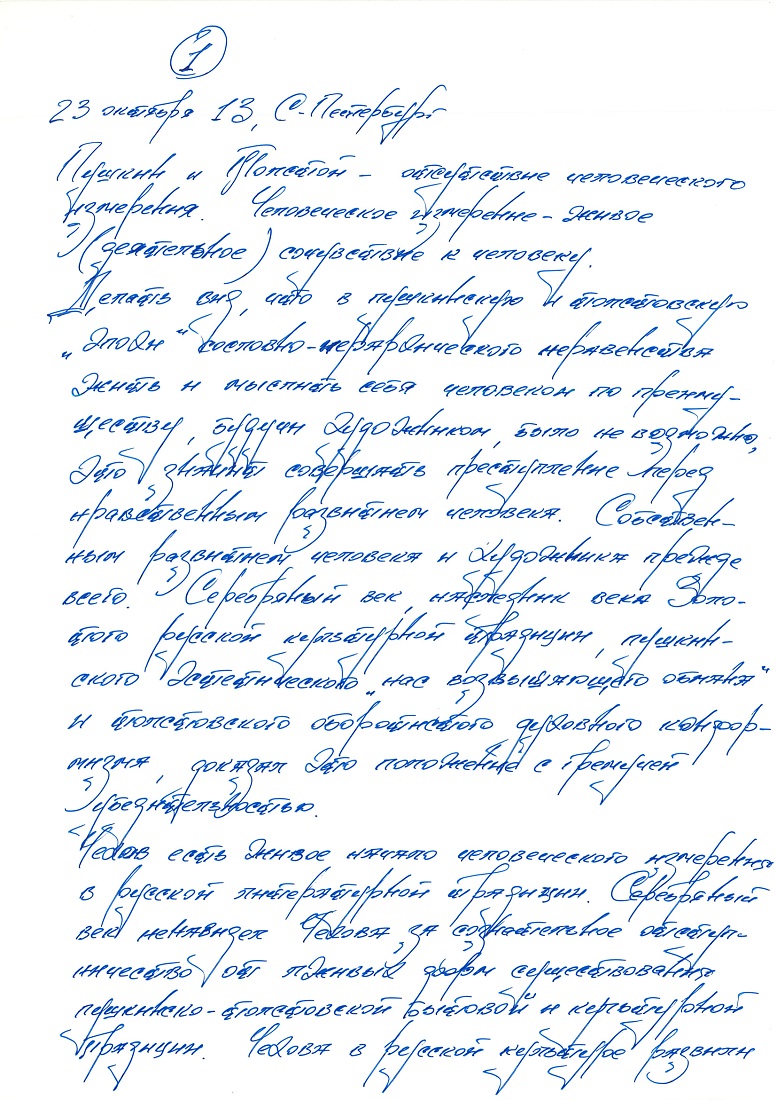 1
23 октября 13, С-Петербург
Пушкин и Толстой – отсутствие человеческого
измерения. Человеческое измерение – живое
(деятельное) сочувствие к человеку.
Делать вид, что в пушкинскую и толстовскую
„эпохи“ сословно-иерархического неравенства
жить и мыслить себя человеком по преиму-
ществу, будучи художником, было не возможно,
это значит совершать преступление перед
нравственным развитием человека. Собствен-
ным развитием человека и художника прежде
всего. Серебряный век, наследник века Золо-
того русской культурной традиции, пушкин-
ского эстетического „нас возвышающего обмана“
и толстовского оборотистого духовного конфор-
мизма, доказал это положение с гремучей
убедительностью.
Чехов есть живое начало человеческого измерения
в русской литературной традиции. Серебряный
век ненавидел Чехова за сознательное отступ-
ничество от лживых форм существования
пушкинско-толстовской бытовой и культурной
традиции. Чехова в русской культуре развили